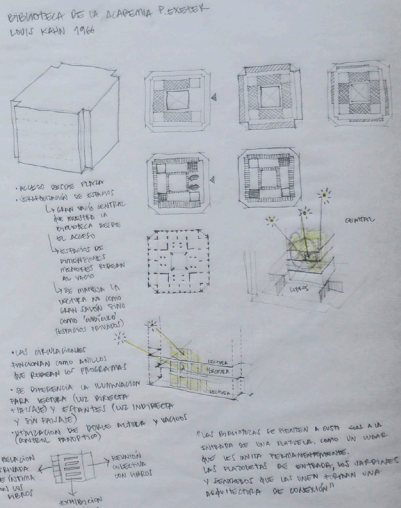 BIBLIOTECA DE LA ACADEMIA P. EXETER
LOUIS KAHN 1966
• ACCESO DESDE PLANTA
DE ESPACIOS
GRAN VACÍO CENTRAL
QUE MUESTRA LA
BIBLIOTECA DESDE
EL ACCESO
ESPACIOS DE
DIMENSIONES
MENORES RODEAN
AL VACÍO
SE MANEJA LA
LECTURA NO COMO
GRAN SALÓN SINO
COMO "CUBÍCULO"
(ESPACIOS PRIVADOS)
CENITAL
LIBROS
• LAS CIRCULACIONES
FUNCIONAN COMO ANILLOS
QUE RODEAN LOS PROGRAMAS
LECTURA
LECTURA
LECTURA
• SE DIFERENCIA LA ILUMINACIÓN
PARA LECTURA (LUZ DIRECTA
+ PAISAJE) Y ESTANTES (LUZ INDIRECTA
Y SIN PAISAJE)
• UTILIZACIÓN DE DOBLE ALTURA Y VACÍOS
(CONTROL PANÓPTICO)
RELACIÓN
PRIVADA
E ÍNTIMA
CON LOS
LIBROS
REUNIÓN
COLECTIVA
CON LIBROS
EXHIBICIÓN
"LAS BIBLIOTECAS SE SIENTEN A GUSTO
ENTRADA DE UNA PLAZUELA, COMO UN LUGAR
QUE LES INVITA PERMANENTEMENTE.
LAS PLAZOLETAS DE ENTRADA, LOS JARDINES
Y SENDEROS QUE LAS UNEN FORMAN UNA
ARQUITECTURA DE CONEXIÓN"